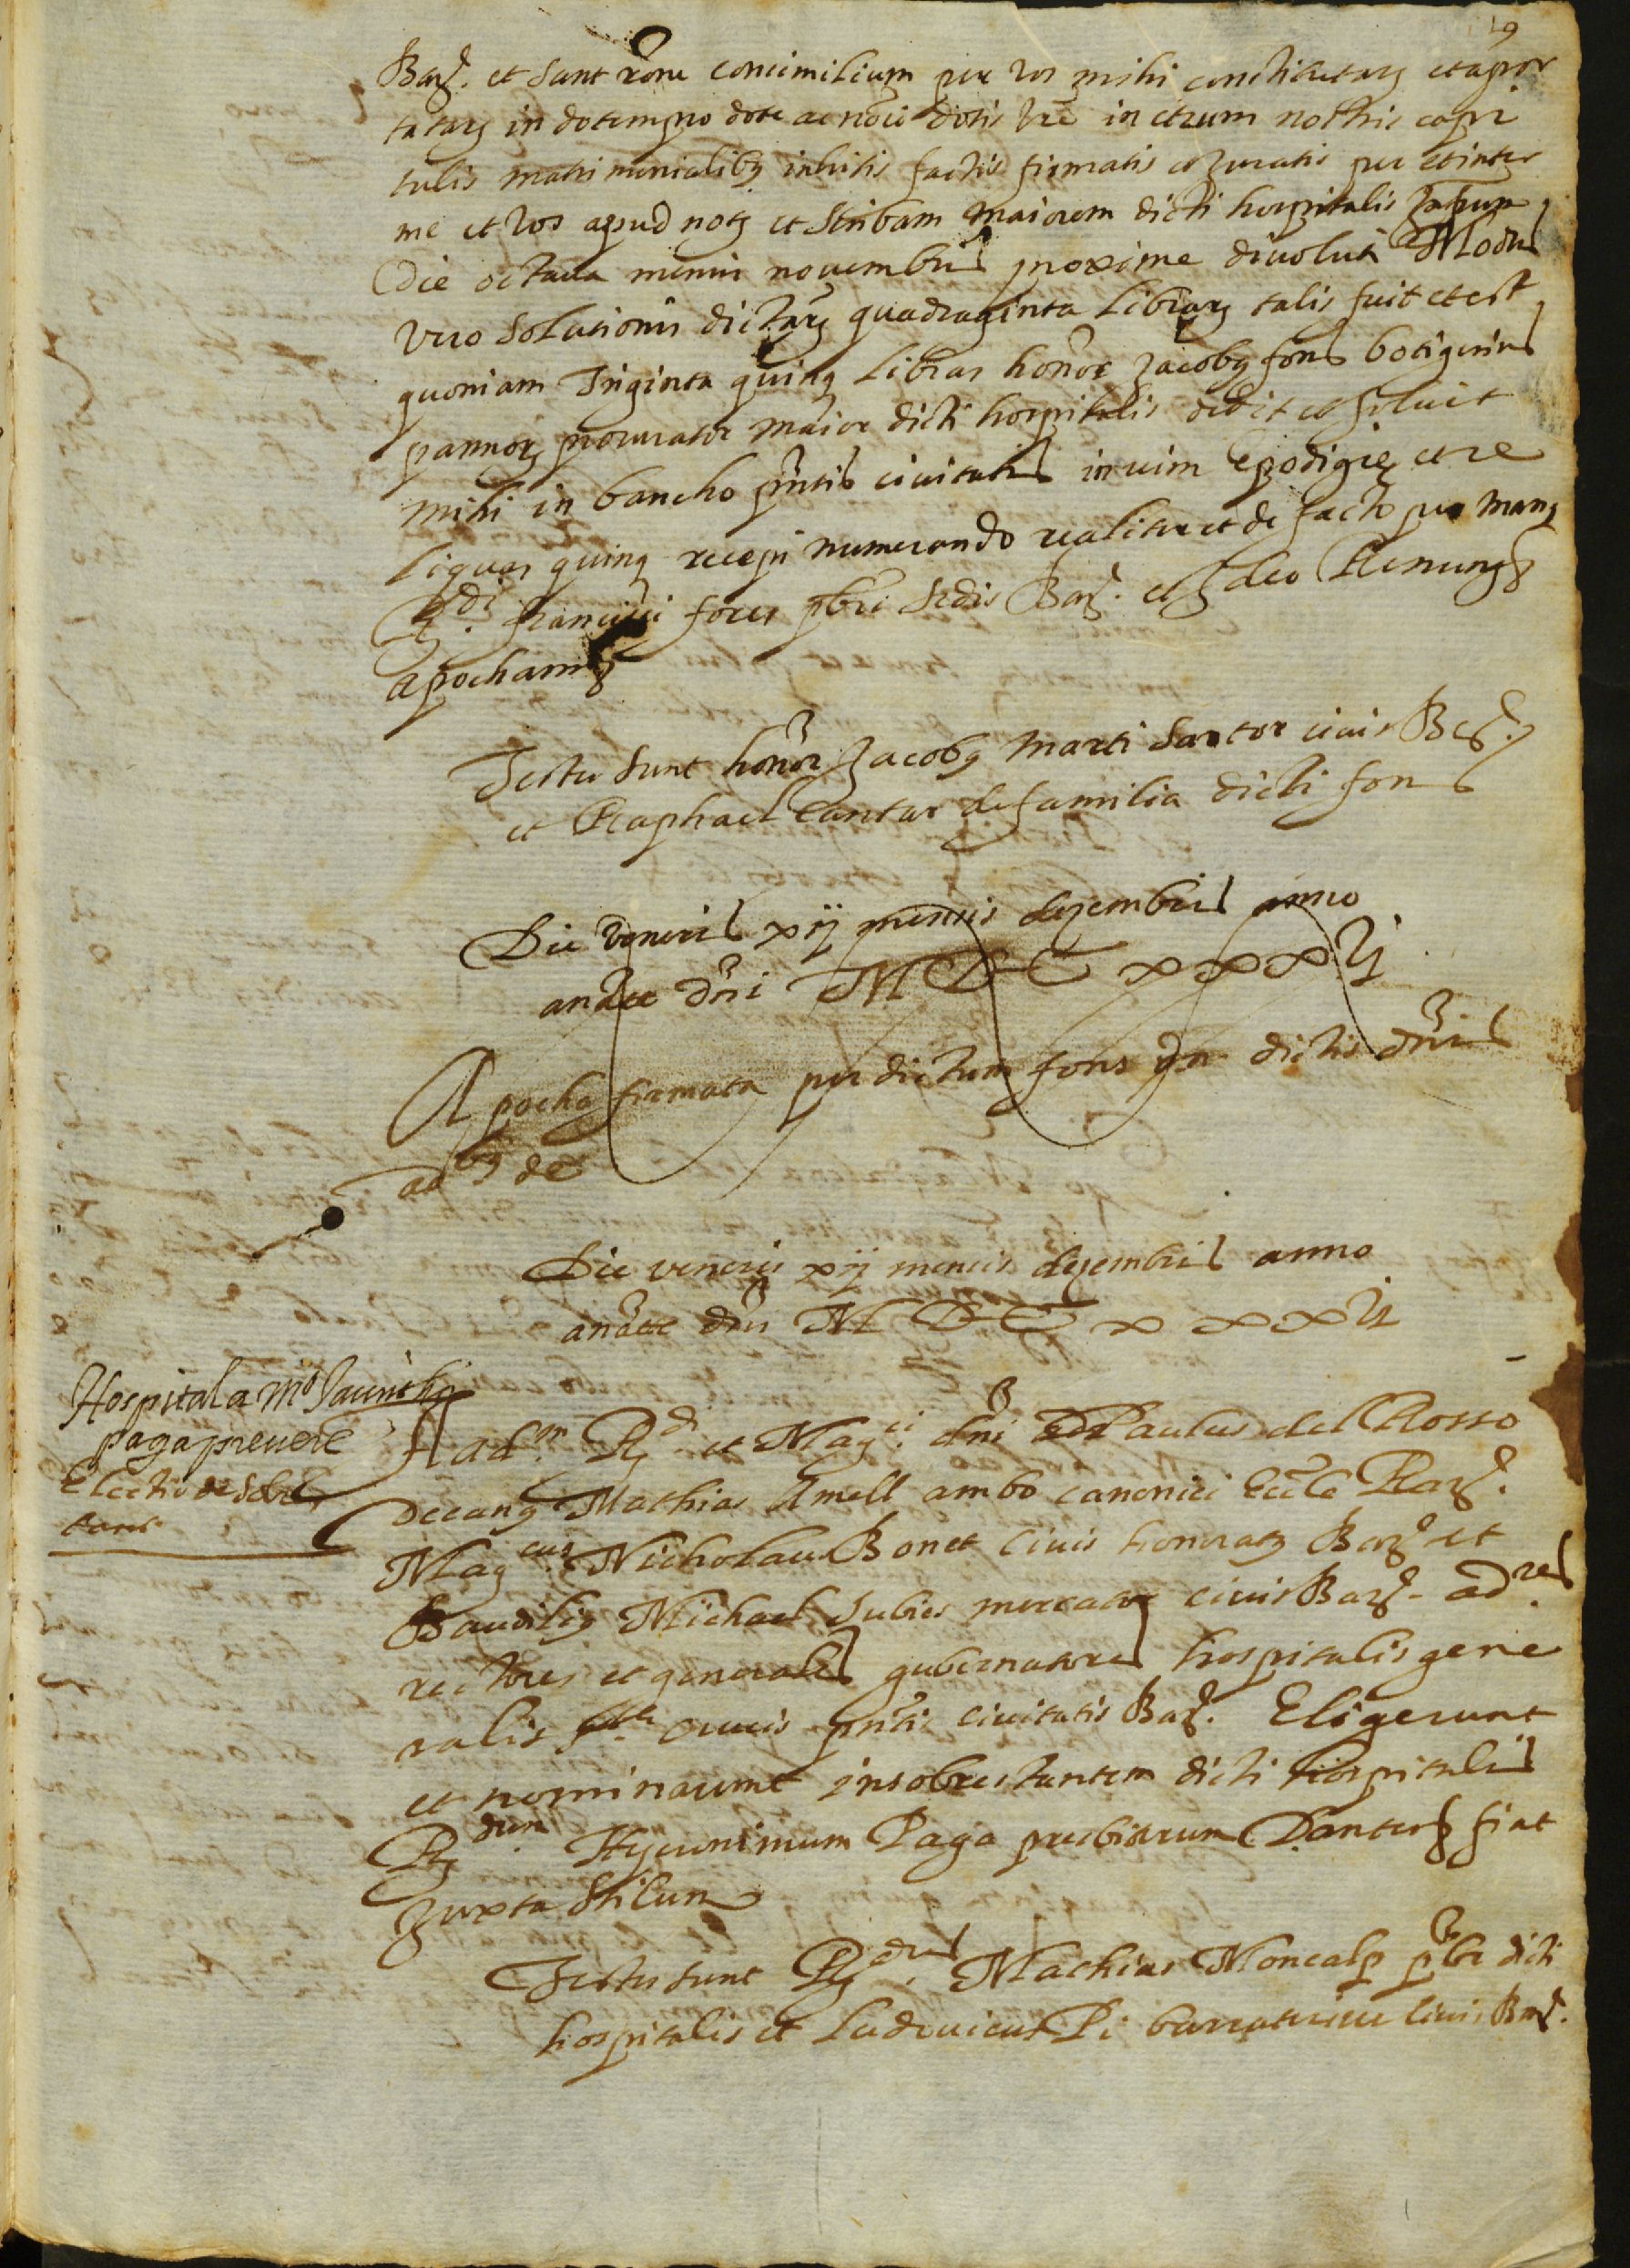 9
Barᵉ. et sunt rōne consimilium per vos mihi constitutarꝫ et apor
tatarꝫ in dotem pro dote ac nōie dotis vrē in etrum nostris capi
tulis matrimonialibꝫ initis factis firmatis et juratis per et inter
me et vos apud notꝫ et Scribam maiorem dicti hospitalis
die octaua mensis nouembris proxime deuoluti Modus
vero solutionis dictarꝫ quadraginta librarꝫ talis fuit et est
quoniam Triginta quinqꝫ libras honor Jacobꝰ fons botigerius
pannorꝫ procurator maior dicti hospitalis dedit et soluit
mihi in bancho pñtis ciuitatis in vim apodixie et re
liquas quinqꝫ recepi numerando realiter et de facto per manꝰ
Rᵈⁱ. francisci fores pbri Sedis Barᵉ. et ideo Renunꝫ
apocham
Testes sunt honor Jacobꝰ Marti Sartor ciuis Barᵉ.
et Raphael Cantar de familia dicti fons
Die veneris xij mensis dezembris anno
anate dñi M DC xxxij
Apocha firmata per dictum fons dictis dñis
adᵇꝫ de
Die veneris xij mensis dezembris anno
anate dñi M DC xxxij
Hospital a Mᵒ Jacinthꝰ
paga prevere
Electio de Sobres
tant
Adᵐ. Rᵈⁱ. et Magᶜⁱ. dñi Paulus del Rosso
Decanꝰ Mathias Amell ambo canonici Eccle Barᵉ.
Magᶜᵘˢ. Nicholaus Bonet Ciuis honoratꝰ Barᵉ et
Baudiliꝰ Michael Subies mercator ciuis Barᵉ. adʳᵉˢ.
rectores et generales gubernatores hospitalis gene
ralis Stᵉ. Crucis pñtis ciuitatis Barᵉ. Eligerunt
et nominarunt in sobrestantem dicti hospitalis
Rᵈᵘᵐ. Hyeronimum Paga presbiterum Dantes fiat
Juxta Stilum
Testes sunt Rᵈᵘˢ. Mathias Moncalp pbr dicti
hospitalis et Ludouicus Pi ciuis Barᵉ.